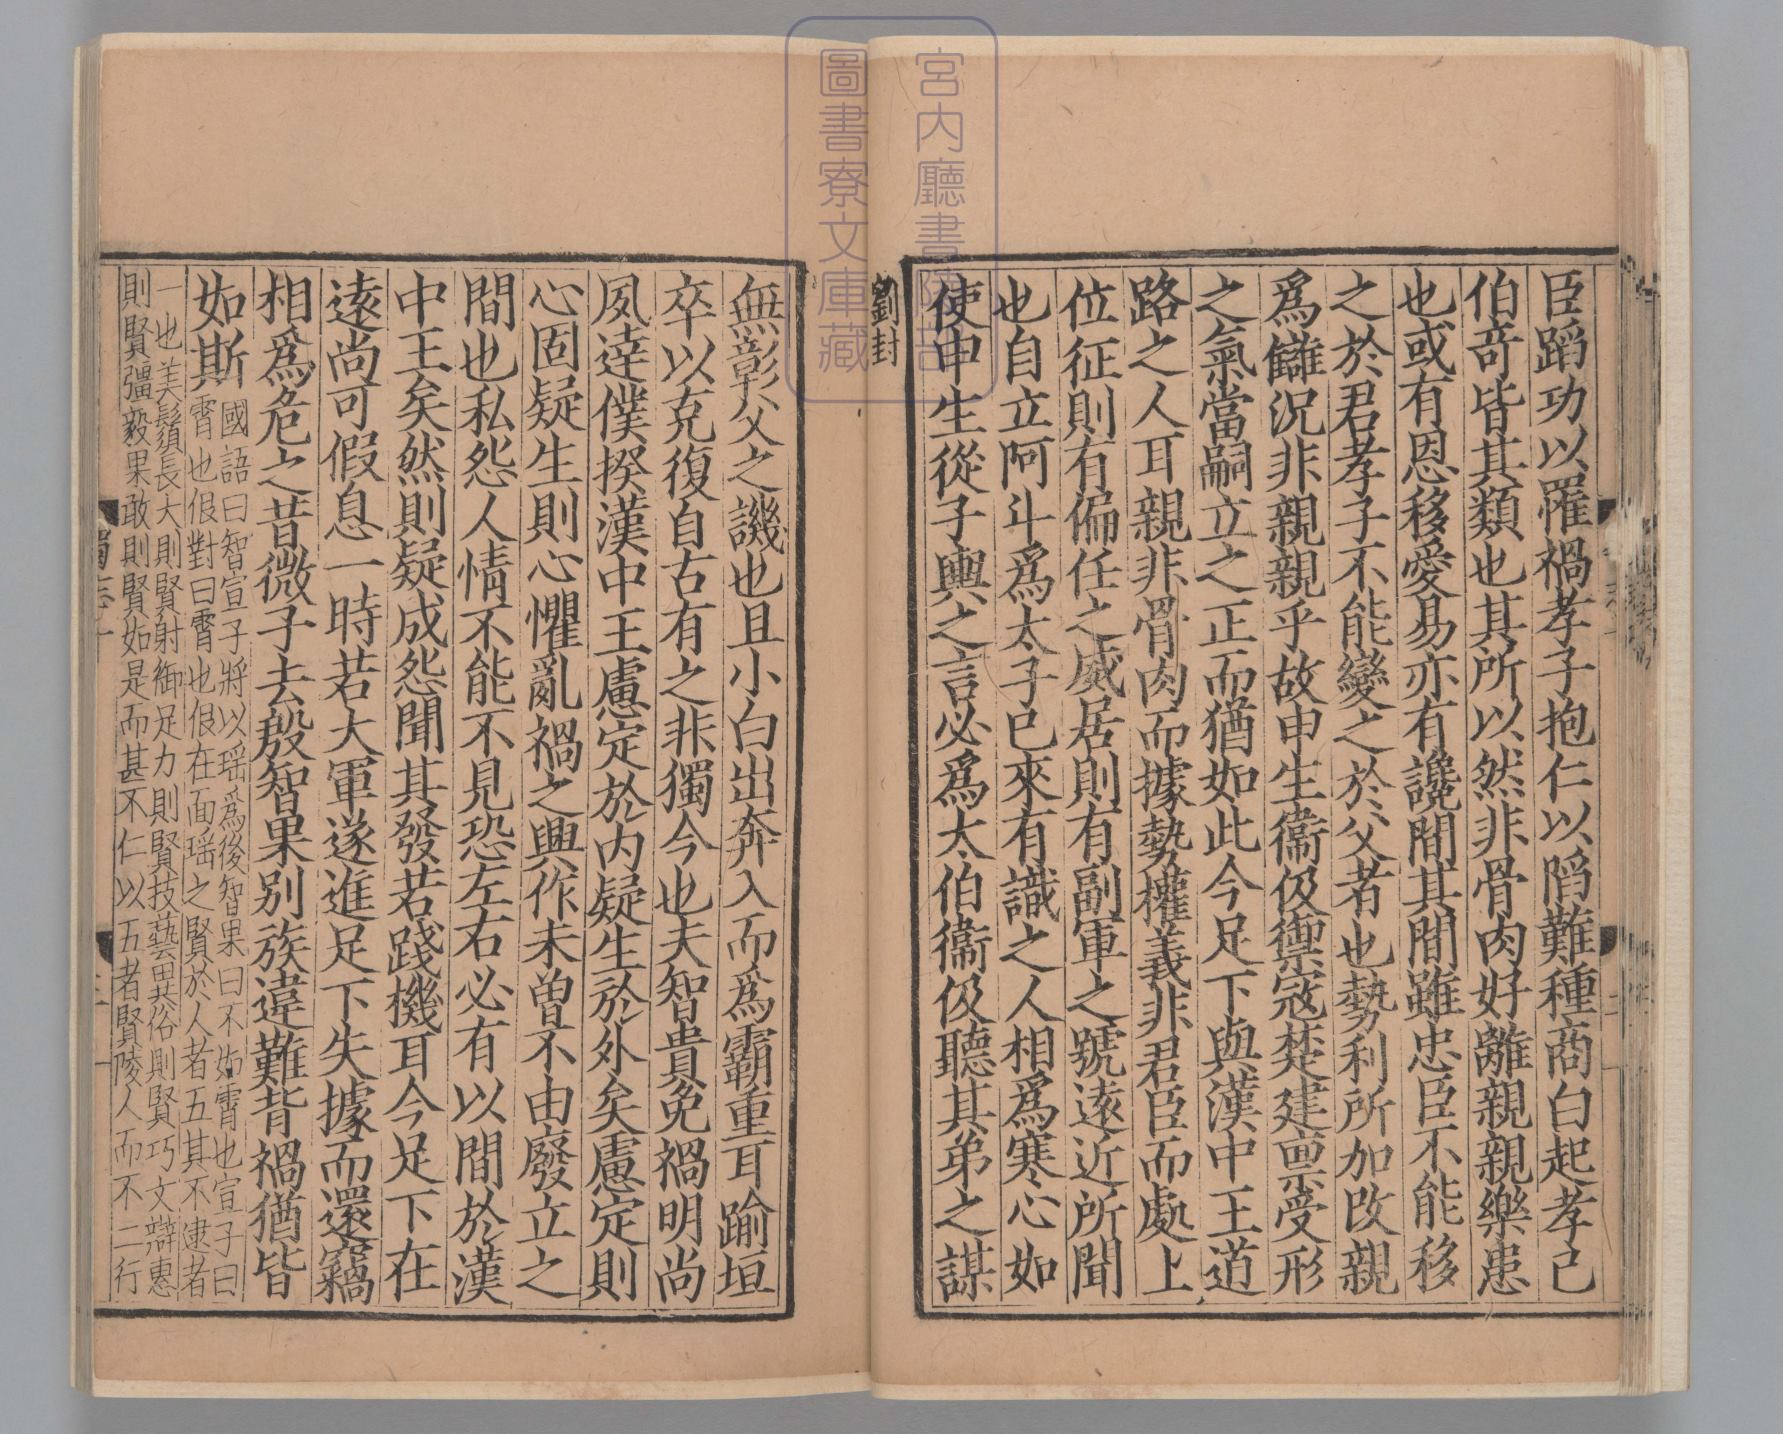 臣蹈功以罹禍孝子抱仁以陷難種商白起孝己
伯奇皆其類也其所以然非骨肉好離親親樂患
也或有恩移愛易亦有讒間其間雖忠臣不能移
之於君孝子不能變之於父者也勢利所加改親
爲讎況非親親乎故申生衞伋禦寇楚建稟受形
之氣當嗣立之正而猶如此今足下與漢中王道
路之人耳親非骨肉而據勢權義非君臣而處上
位征則有偏任之威居則有副軍之號遠近所聞
也自立阿斗爲太子已來有識之人相爲寒心如
使申生從子輿之言必爲太伯衞伋聽其弟之謀
劉封
無彰父之譏也且小白出奔入而爲霸重耳踰垣
卒以克復自古有之非獨今也夫智貴免禍明尚
夙達僕揆漢中王慮定於內疑生於外矣慮定則
心固疑生則心懼亂禍之興作未曾不由廢立之
間也私怨人情不能不見恐左右必有以間於漢
中王矣然則疑成怨聞其發若踐機耳今足下在
遠尚可假息一時若大軍遂進足下失據而還竊
相爲危之昔微子去殷智果別族違難背禍猶皆
如斯國語曰智宣子將以瑶爲後智果曰不如霄也宣子曰
霄也佷對曰霄也佷在面瑶之賢於人者五其不逮者
一也美鬚長大則賢射御足力則賢技藝畢俗則賢巧文辯惠
則賢彊毅果敢則賢如是而甚不仁以五者賢陵人而不二行
蜀志十
宮内廳書陵部
圖書寮文庫藏